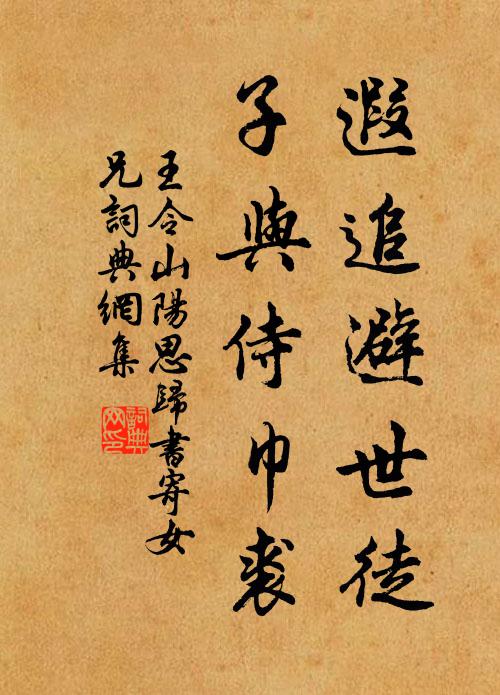 遐追避世徒
子與侍巾裘
王令山陽思歸書寄女
兄詞典網集
詞典
网印